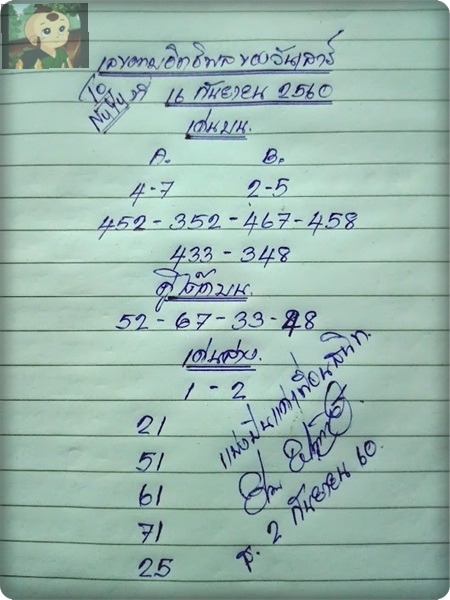 เลขตามอิทธิพลของวันเสาร์
16 กันยายน 2560
เด่นบน.
A. B.
4-7 2-5
452-352-467-458
433-348
คู่โต๊ดบน.
52-67-33-48
เด่นล่าง.
1-2
21
51
61
71
25
แบ่งปันแด่เพื่อนสนิท.
ส. 2 กันยายน 60.